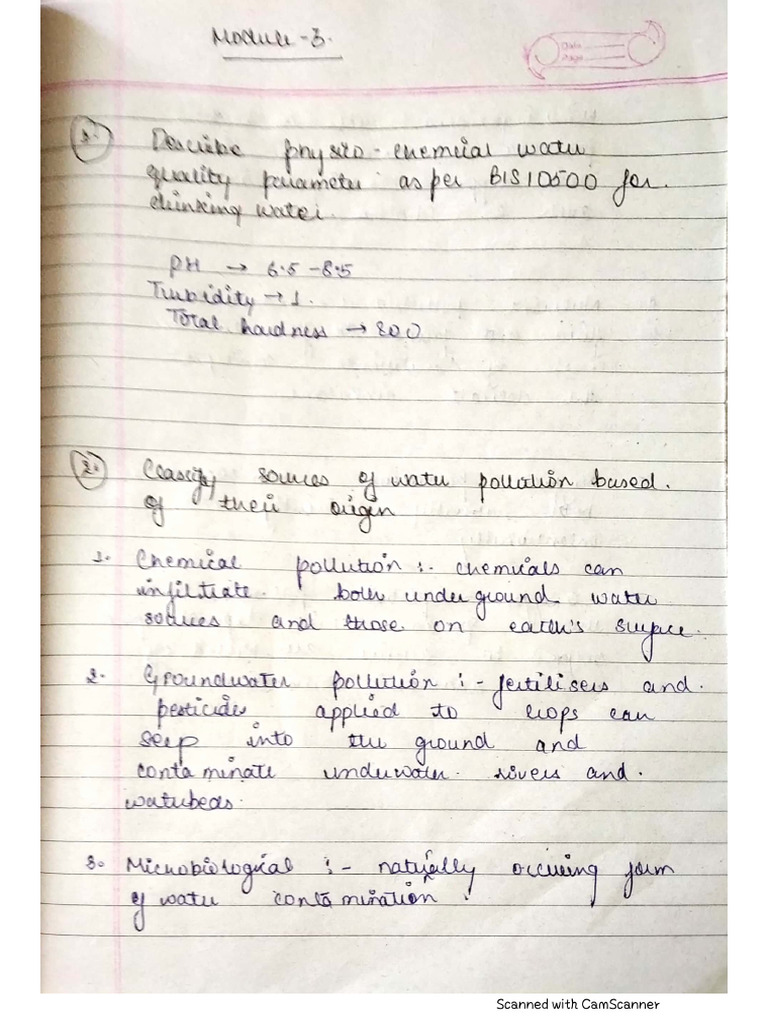 Module - 3.
Date
Page
1. Describe physico - chemical water
quality parameter as per BIS10500 for
drinking water.
PH → 6.5 - 8.5
Turbidity → 1.
Total hardness → 200
2. Classify sources of water pollution based
of their origin
1. Chemical pollution :- chemicals can
infiltrate both underground water
sources and those on earth's surface.
2. Groundwater pollution :- fertilisers and
pesticides applied to crops can
seep into the ground and
contaminate underwater rivers and
waterbeds.
3. Microbiological :- naturally occuring form
of water contamination.
Scanned with CamScanner